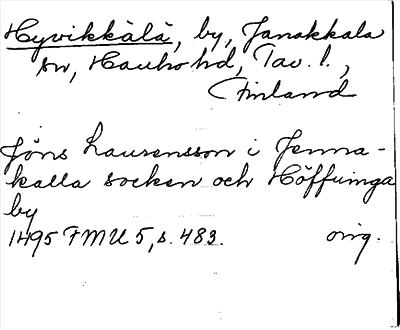 Hyvikkälä, by, Janakkala
sn, Hauho hd, Tav. l.,
Finland
Jöns Laurensson i Jenna-
kalla socken och Höffuinga
by
1495 FMU 5, s. 483. orig.